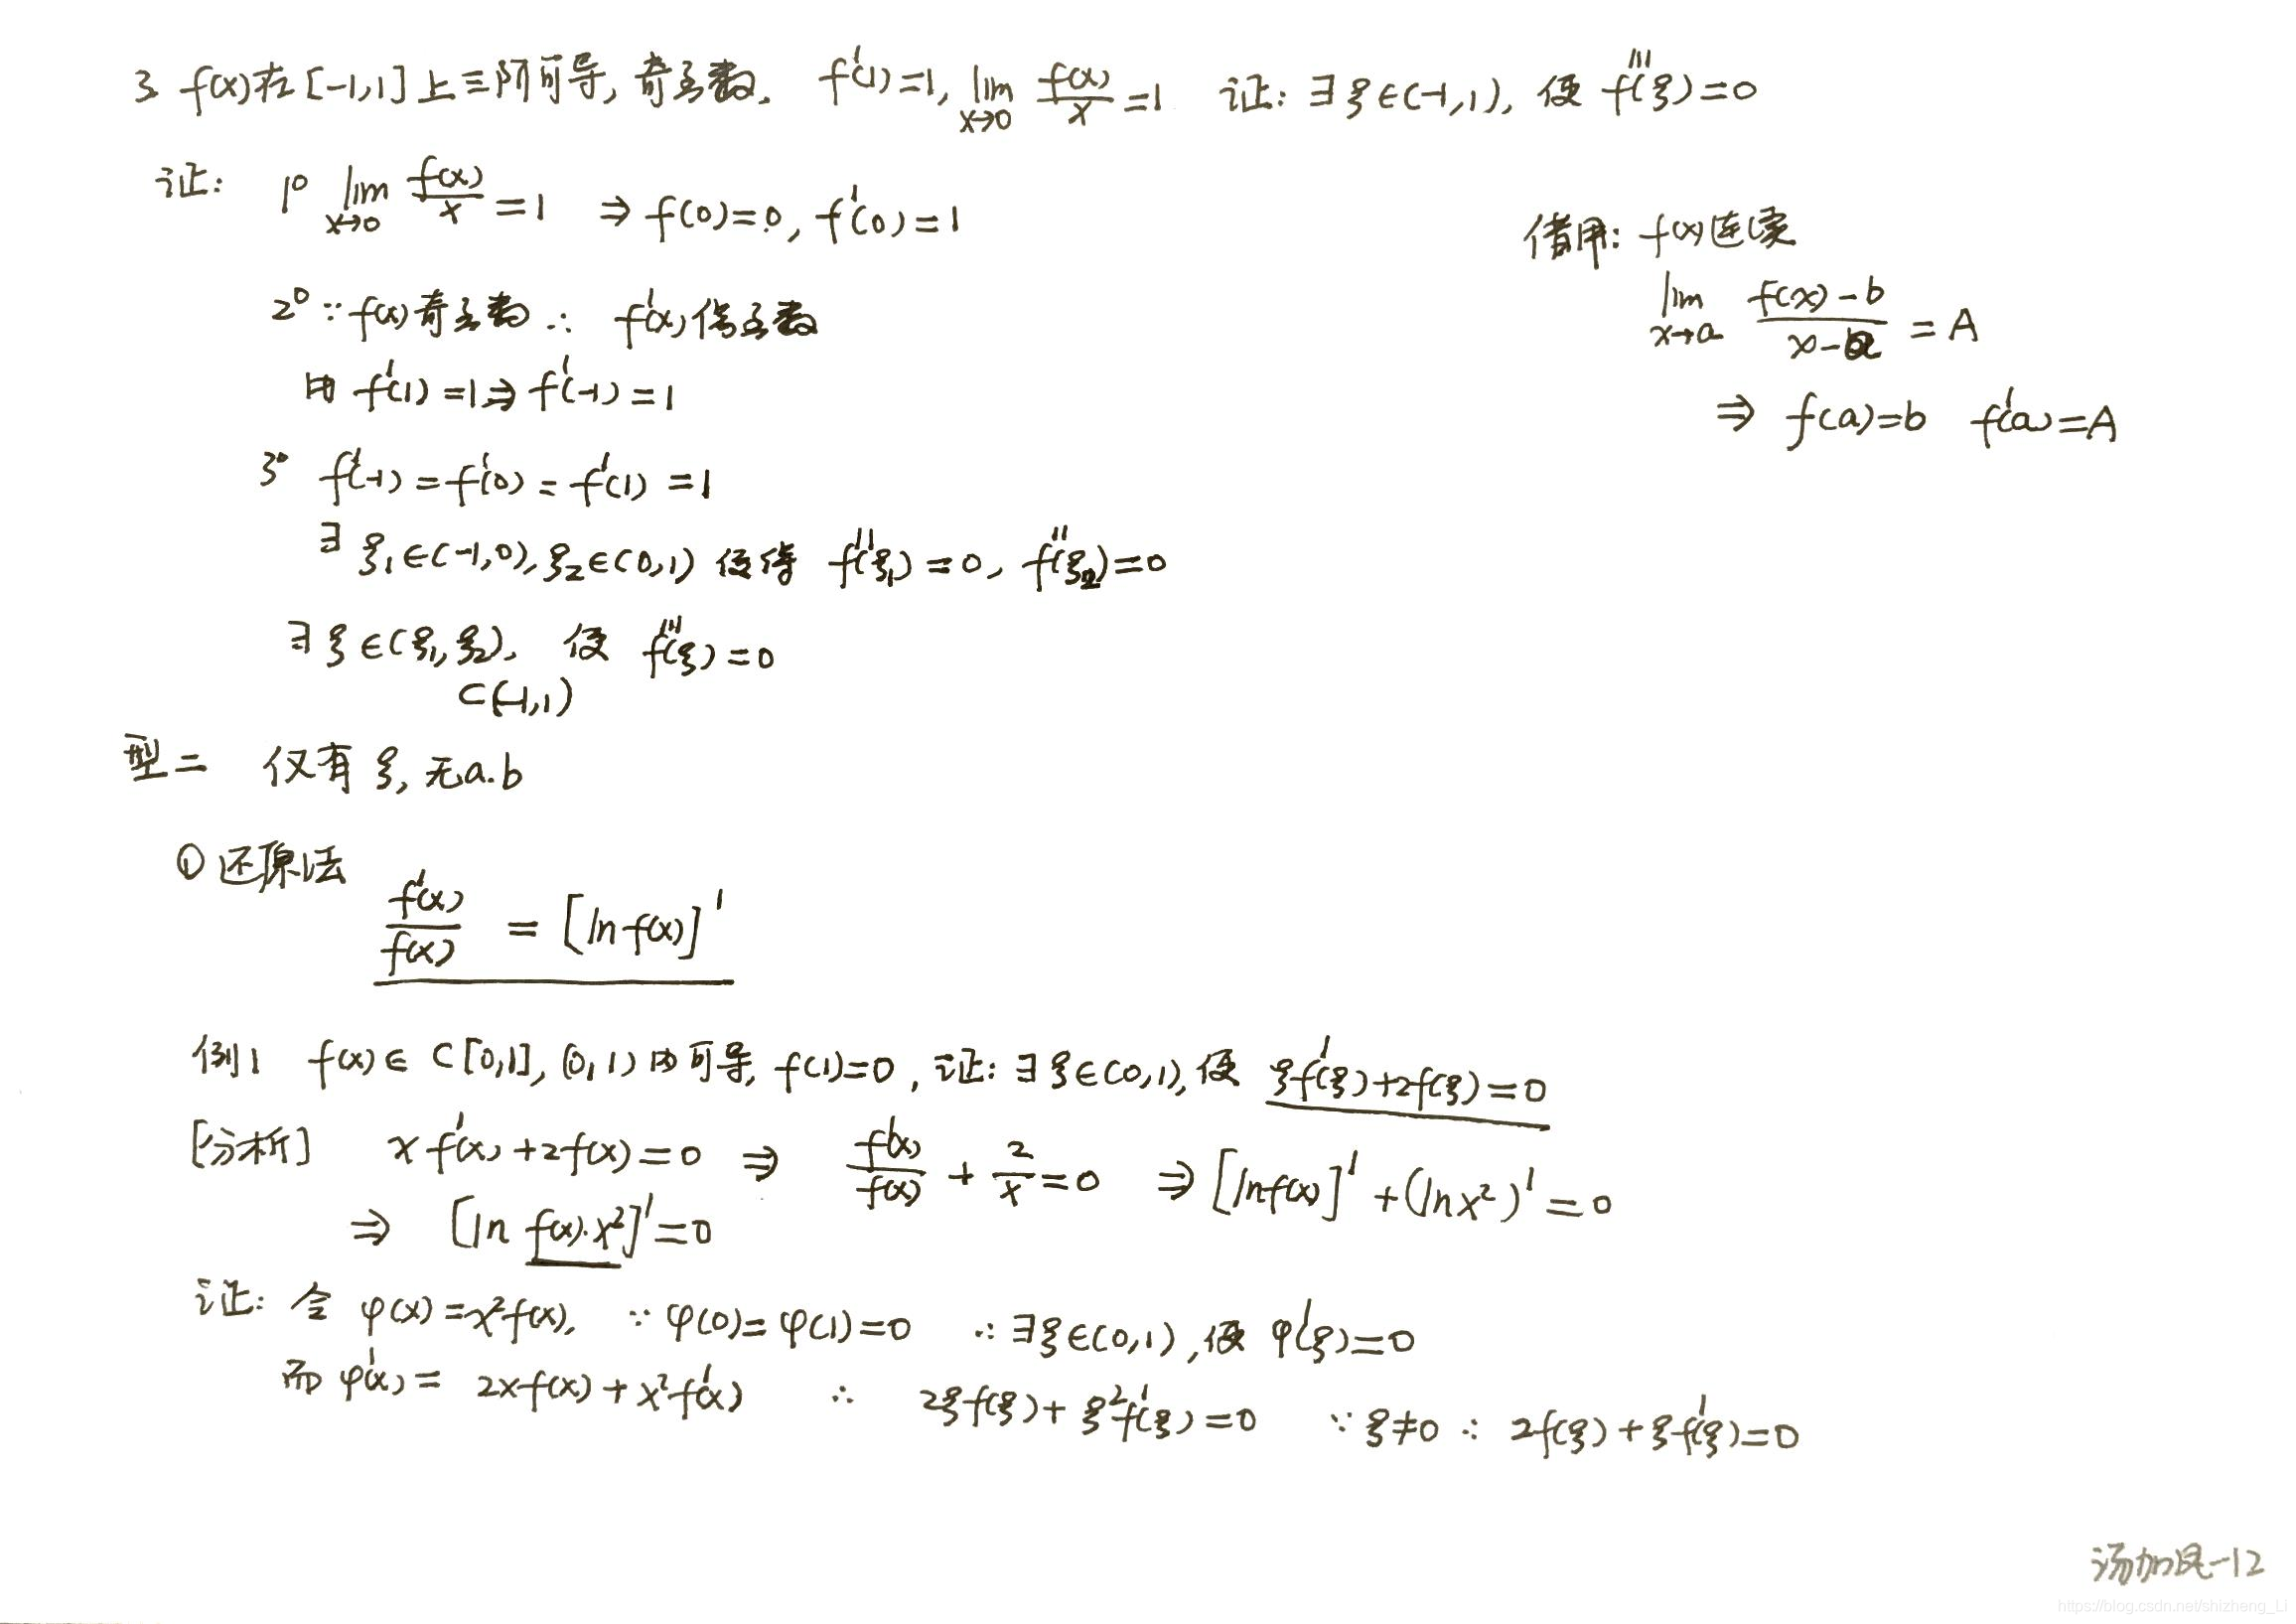 3 f(x)在[-1,1]上三阶可导, 奇函数, f'(1)=1, lim_{x→0} f(x)/x =1 证: ∃ξ∈(-1,1), 使 f'''(ξ)=0
证: 1° lim_{x→0} f(x)/x =1 ⇒ f(0)=0, f'(0)=1
2° ∵ f(x)奇函数 ∴ f'(x)偶函数
由 f'(1)=1 ⇒ f'(-1)=1
3° f'(-1)=f'(0)=f'(1)=1
∃ ξ₁∈(-1,0), ξ₂∈(0,1) 使得 f''(ξ₁)=0, f''(ξ₂)=0
∃ξ∈(ξ₁,ξ₂), 使 f'''(ξ)=0
⊂(-1,1)
借用: f(x)连续
lim_{x→a} (f(x)-b)/(x-a) = A
⇒ f(a)=b f'(a)=A
型二 仅有ξ, 无a.b
① 还原法
f'(x)/f(x) = [ln f(x)]'
例1 f(x)∈C[0,1], (0,1)内可导, f(1)=0, 证: ∃ξ∈(0,1), 使 ξf'(ξ)+2f(ξ)=0
[分析] xf'(x)+2f(x)=0 ⇒ f'(x)/f(x) + 2/x =0 ⇒ [lnf(x)]'+(lnx²)'=0
⇒ [ln f(x)·x²]'=0
证: 令 φ(x)=x²f(x), ∵ φ(0)=φ(1)=0 ∴ ∃ξ∈(0,1), 使 φ'(ξ)=0
而 φ'(x)= 2xf(x)+x²f'(x) ∴ 2ξf(ξ)+ξ²f'(ξ)=0 ∵ ξ≠0 ∴ 2f(ξ)+ξf'(ξ)=0
汤加凤-12
https://blog.csdn.net/shizheng_Li